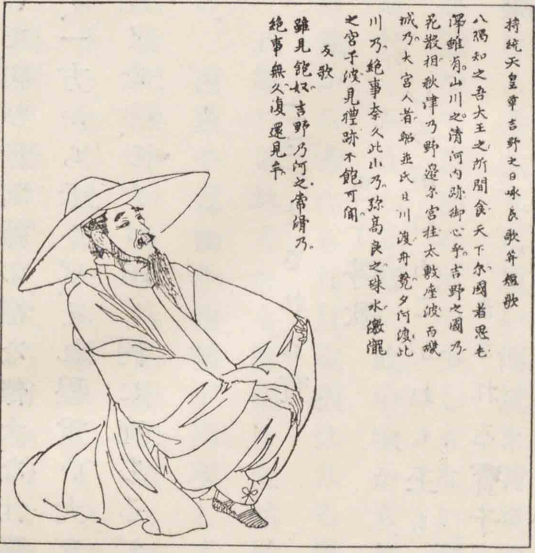 持統天皇幸吉野之日咏長歌并短歌
八隅知之吾大王之所聞食天下尓國者思毛
澤雖有山川之清河内跡御心乎吉野之國乃
花散相秋津乃野邊尓宮柱太敷座波百磯
城乃大宮人者船並氐旦川渡舟競夕河波此
川乃絶事奈久此山乃弥高良之珠水激瀧
之宮子波見禮跡不飽可聞
反歌
雖見飽奴吉野乃河之常滑乃
絶事無久復還見牟